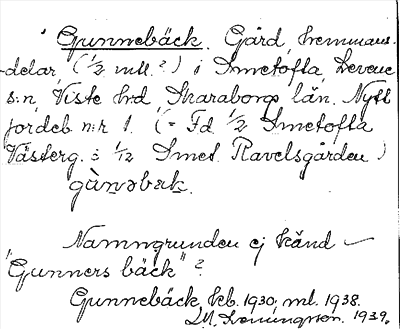 Gunnebäck. Gård, hemmans-
delar, (1/2 mtl.?) i Smetofta, Levene
s:n, Viste hrd, Skaraborgs län. Nytt
jordeb. n:r 1. (= Fd. 1/2 Smetofta
Västerg. : 1/12 Smet. Ravelsgården)
gùnəbæk.
Namngrunden ej känd –
"Gunners bäck"?
Gunnebäck, kb. 1930, ml. 1938.
1939.